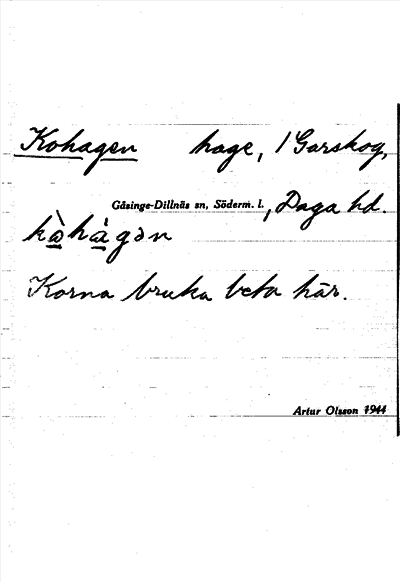 Kohagen hage, / Garskog,
Gåsinge-Dillnäs sn, Söderm. l., Daga hd.
kàhágən
Korna bruka beta här.
Artur Olsson 1944